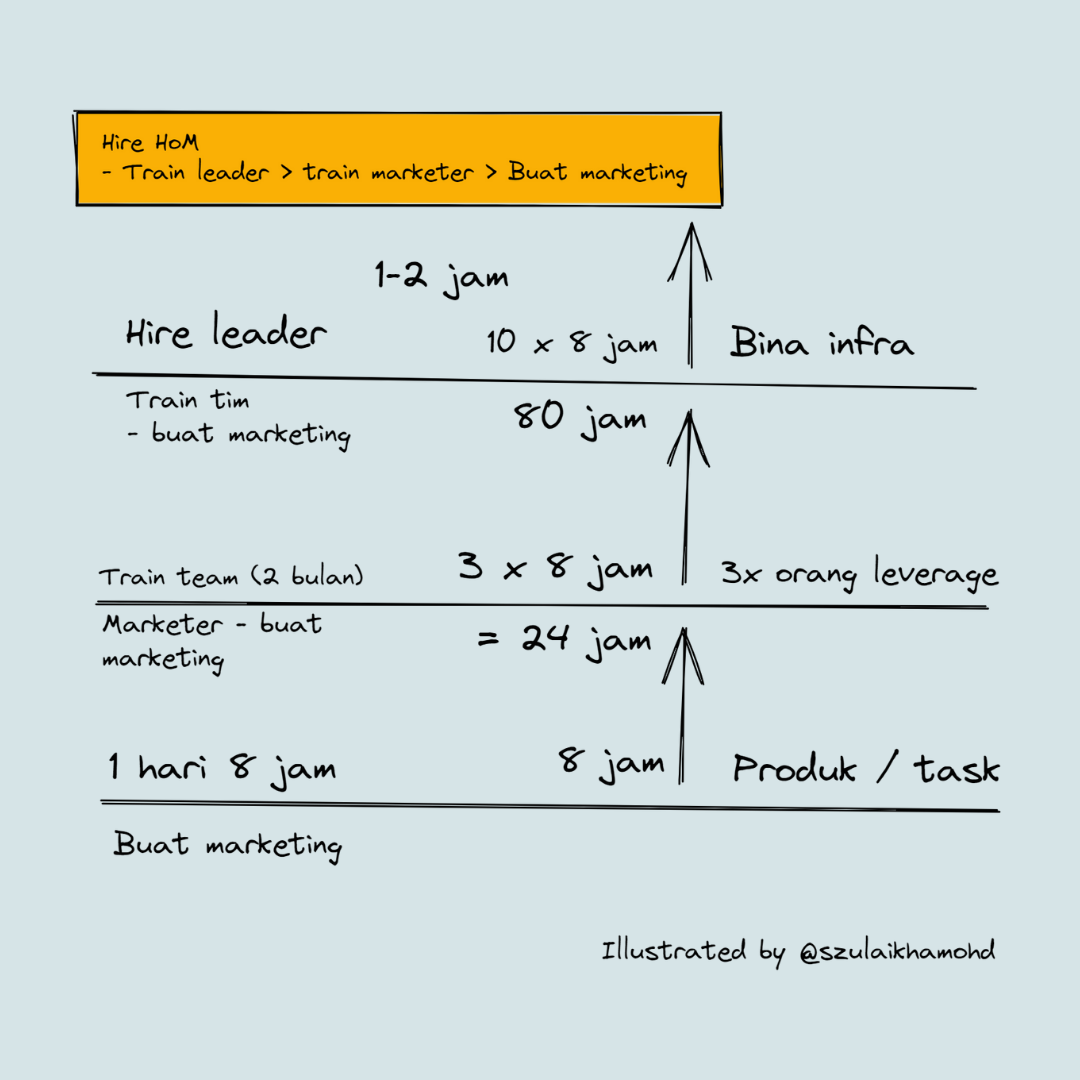 Hire HoM
- Train leader > train marketer > Buat marketing
1-2 jam
Hire leader
10 x 8 jam
Bina infra
Train tim
- buat marketing
80 jam
Train team (2 bulan)
3 x 8 jam
3x orang leverage
Marketer - buat
marketing
= 24 jam
1 hari 8 jam
8 jam
Produk / task
Buat marketing
Illustrated by @szulaikhamohd